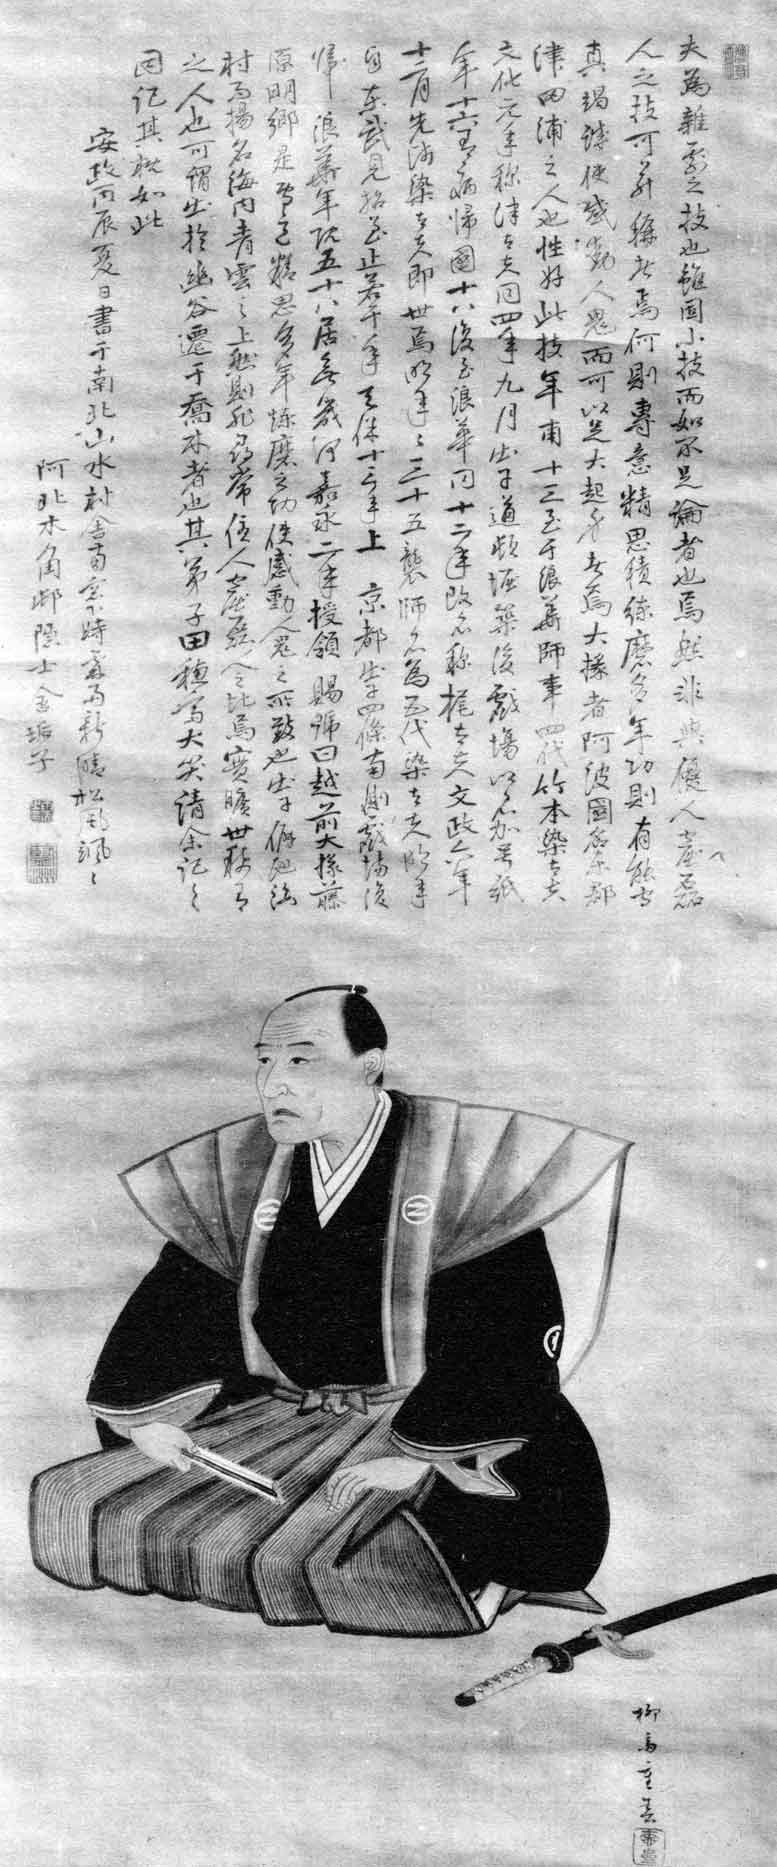 夫為雜劇之技也雖固小技而如不足論者也焉然非與優人
人之技可並稱者焉何則專意精思積練磨多年功則有能
真竭誠使感動人鬼而可以足大起身者焉大掾者阿波國名東郡
津田浦之人也性好此技年甫十三至于浪華師事四代竹本染太夫
文化元年称津太夫同四年九月出于道頓堀築後戲場以
年十六有病帰國十八復至浪華同十二年改名称梶太夫文政六年
十二月先師染太夫即世焉明年三十五襲師名為五代染太夫明年
自東武見招至止若干年天保十三年上京都出于四條南側戲場後
帰浪華年既五十八居無幾何嘉永二年授領賜號曰越前大掾藤
原明郷是皆已精思多年練磨之功使感動人鬼之所致也出于
村而揚名海内青雲之上然則非尋常
之人也可謂出於幽谷遷于喬木者也其弟子田穗為大夫請余記之
因記其概如此
安政丙辰夏日書于南北山水村舍南窓下時霖雨新晴松風颯々
阿北木角邨隱士金垢子
柳島重春